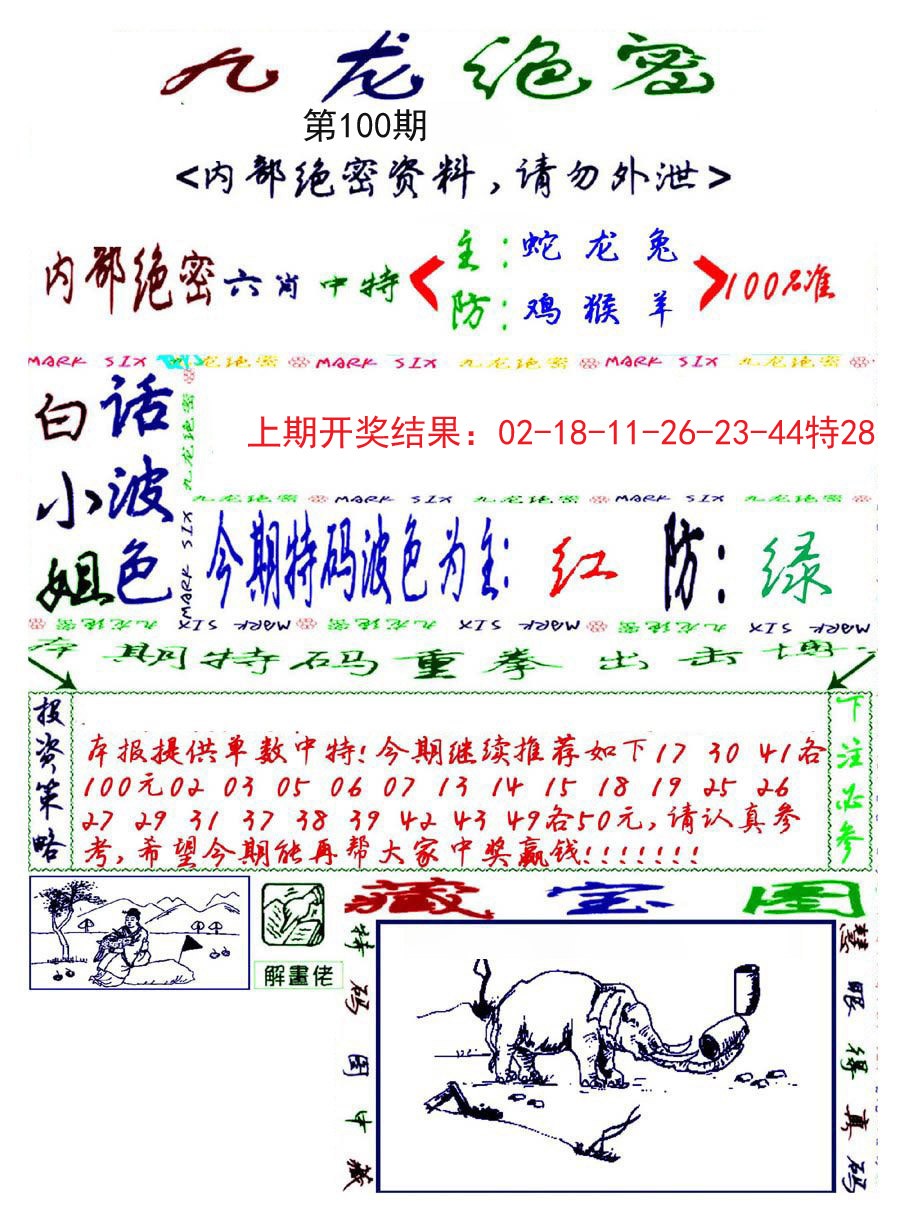 九龙绝密
第100期
<内部绝密资料,请勿外泄>
内部绝密六肖中特
主:蛇 龙 兔
防:鸡 猴 羊
100名准
MARK SIX 九龙绝密 MARK SIX 九龙绝密 MARK SIX 九龙绝密
白小姐
话波色
九龙绝密
MARK SIX
上期开奖结果：02-18-11-26-23-44特28
九龙绝密 MARK SIX 九龙绝密 MARK SIX 九龙绝密
今期特码波色为主:红 防:绿
九龙绝密 MARK SIX 九龙绝密 MARK SIX 九龙绝密 MARK SIX
本期特码重拳出击博
投资策略
本报提供单数中特!今期继续推荐如下17 30 41各
100元02 03 05 06 07 13 14 15 18 19 25 26
27 29 31 37 38 39 42 43 49各50元,请认真参
考,希望今期能再帮大家中奖赢钱!!!!!!!
下注必参
解畫佬
藏宝图
特码图中藏
慧眼得真码